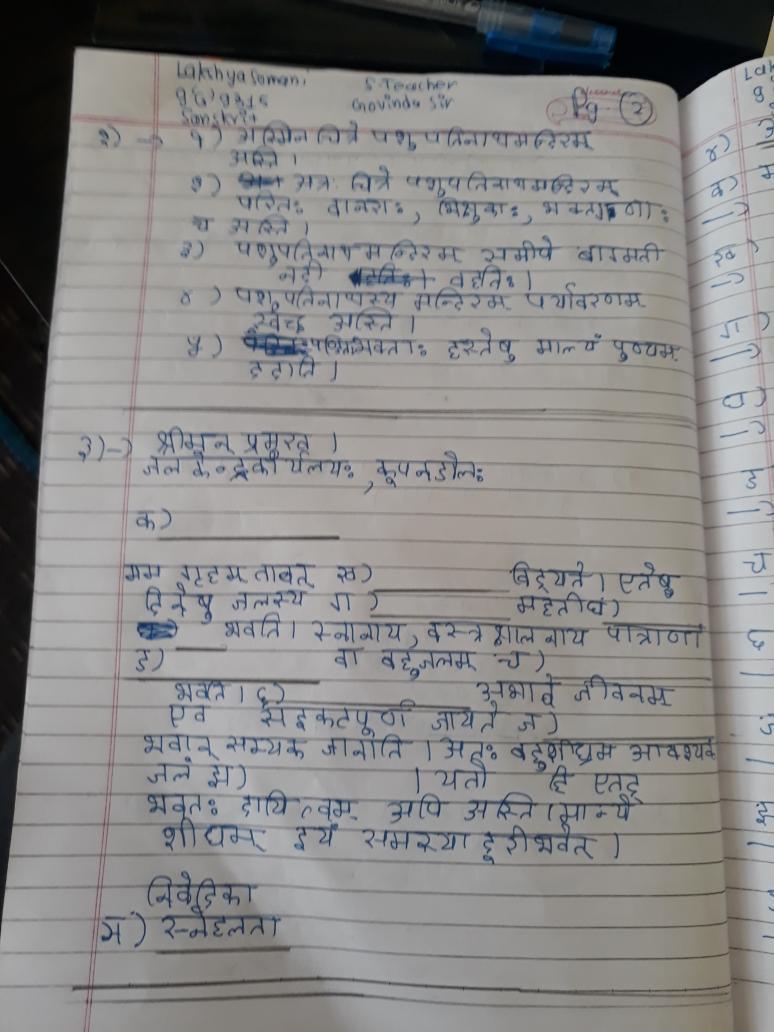 Lakshya Somani S. Teacher
9'G' 9315 Govinda Sir Pg - 2
Sanskrit
२) → १) अस्मिन चित्रे पशुपतिनाथमन्दिरम्
अस्ति ।
२) अत्र चित्रे पशुपतिनाथमन्दिरम्
परितः वानराः, भिक्षुकाः, भक्तगणाः
च अस्ति ।
३) पशुपतिनाथमन्दिरम समीपे बाग्मती
नदी वहतिः ।
४) पशुपतिनाथस्य मन्दिरम् पर्यावरणम्
स्वच्छ अस्ति ।
५) भक्ताः हस्तेषु माल्यं पुष्पम्
ददाति ।
३) → श्रीमन् प्रमुख ।
जल केन्द्रकार्यलयः, कूपनडोलः
क)
मम गृहम् तावत् ख) विद्यते । एतेषु
दिनेषु जलस्य ग) महती घ)
भवति । स्नानाय, वस्त्रक्षालनाय पात्राणां
ङ) वा बहुजलम् च)
भवति । छ) अभावे जीवनम
एव सङ्कटपूर्ण जायते ज)
भवान् सम्यक जानाति । अतः बहुशीघ्रम आवश्यकं
जलं झ) । यतो हि एतद्
भवतः दायित्वम् अपि अस्ति । मान्ये
शीघ्रम् इयं समस्या दूरीभवेत् ।
निवेदिका
ञ) स्नेहलता